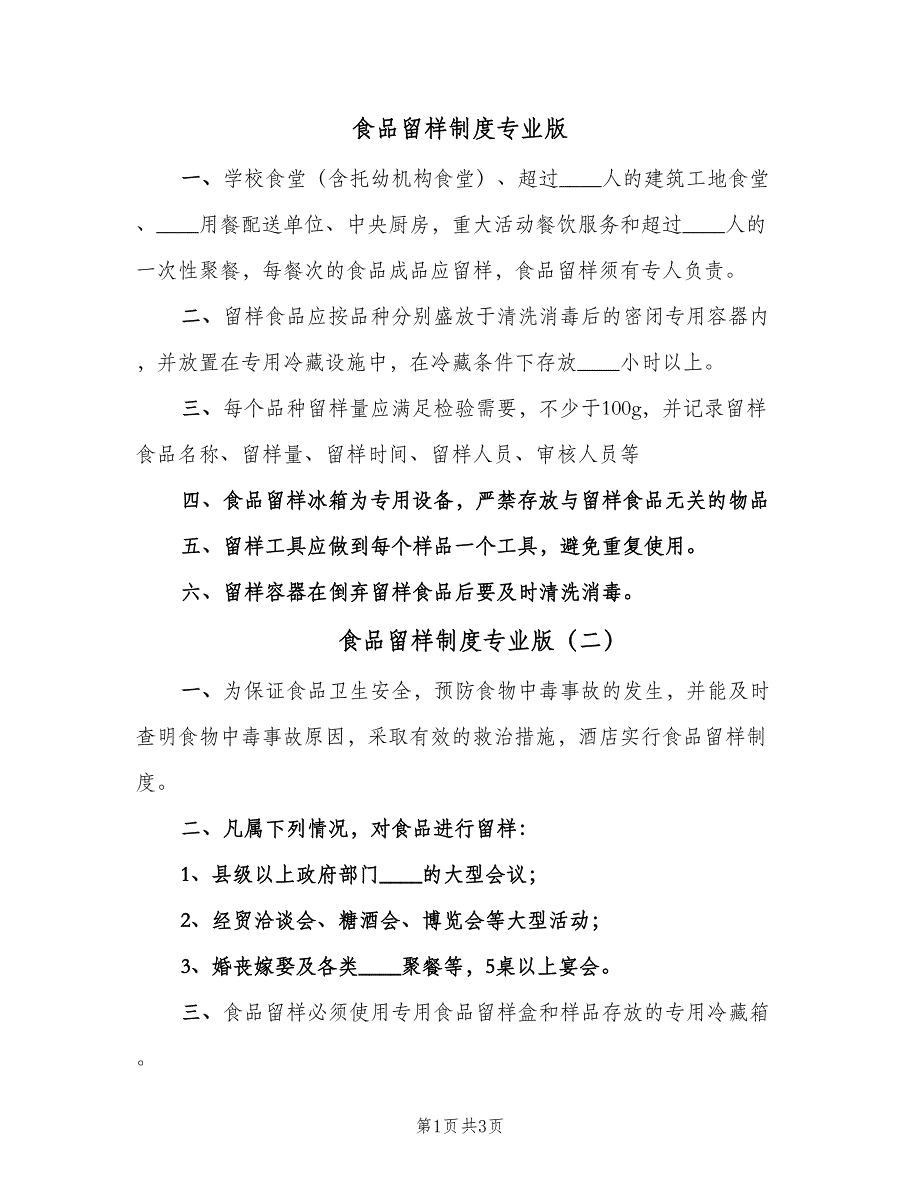 食品留样制度专业版
一、学校食堂（含托幼机构食堂）、超过____人的建筑工地食堂
、____用餐配送单位、中央厨房，重大活动餐饮服务和超过____人的
一次性聚餐，每餐次的食品成品应留样，食品留样须有专人负责。
二、留样食品应按品种分别盛放于清洗消毒后的密闭专用容器内
，并放置在专用冷藏设施中，在冷藏条件下存放____小时以上。
三、每个品种留样量应满足检验需要，不少于100g，并记录留样
食品名称、留样量、留样时间、留样人员、审核人员等
四、食品留样冰箱为专用设备，严禁存放与留样食品无关的物品
五、留样工具应做到每个样品一个工具，避免重复使用。
六、留样容器在倒弃留样食品后要及时清洗消毒。
食品留样制度专业版（二）
一、为保证食品卫生安全，预防食物中毒事故的发生，并能及时
查明食物中毒事故原因，采取有效的救治措施，酒店实行食品留样制
度。
二、凡属下列情况，对食品进行留样：
1、县级以上政府部门____的大型会议；
2、经贸洽谈会、糖酒会、博览会等大型活动；
3、婚丧嫁娶及各类____聚餐等，5桌以上宴会。
三、食品留样必须使用专用食品留样盒和样品存放的专用冷藏箱
。
第1页共3页